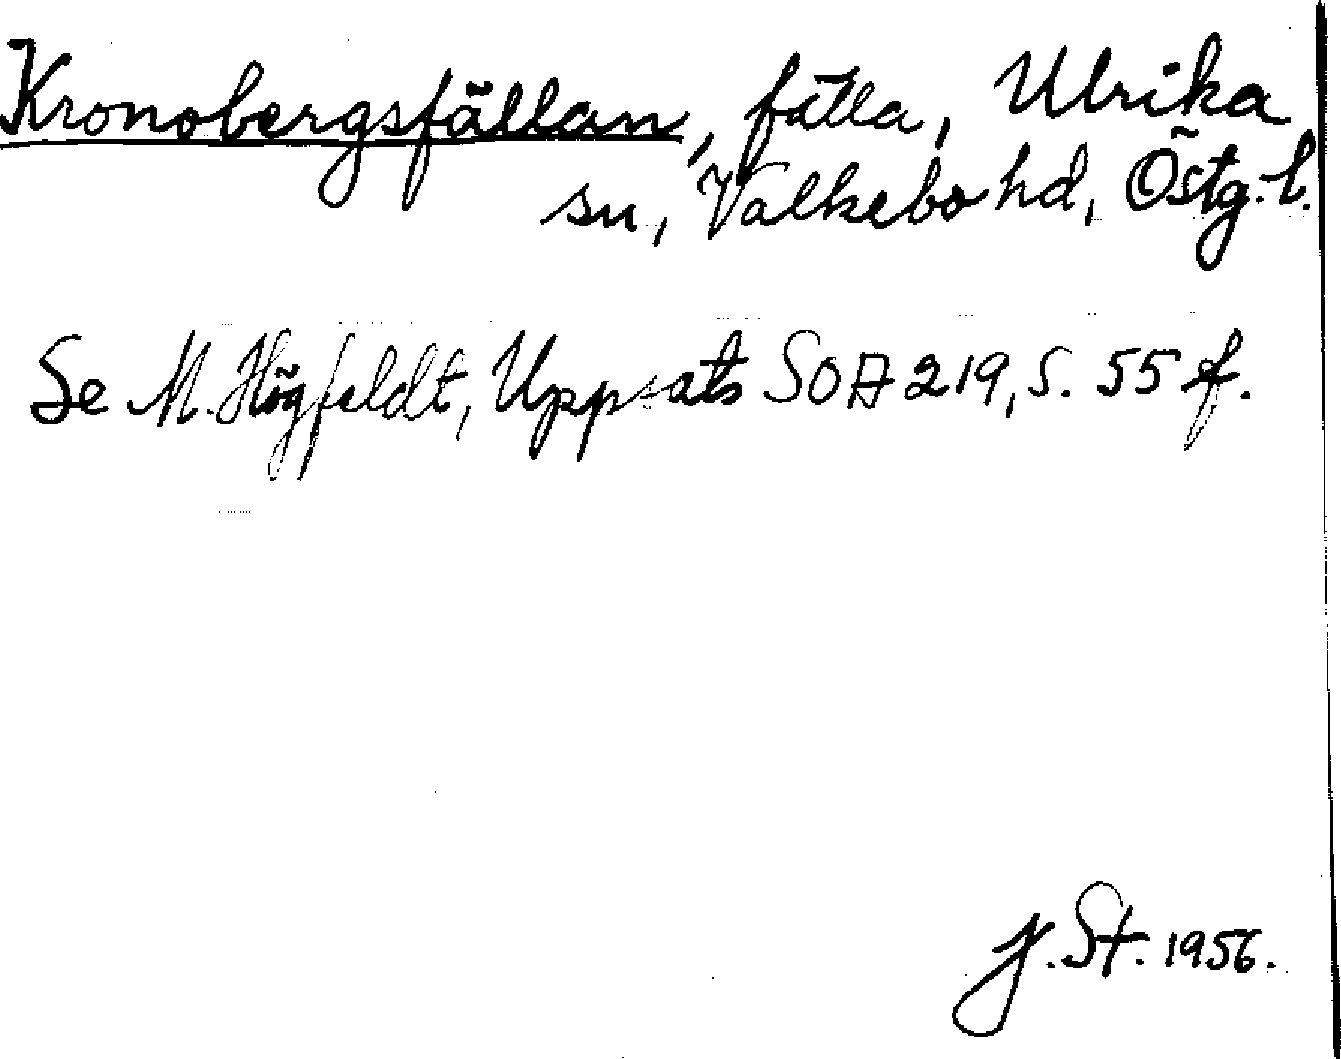 Kronobergsfällan, fälla, Ulrika
sn, Valkebo hd, Östg. l.
Se M. Högfeldt, Uppsats SOA 219, s. 55 f.
J. St. 1956.